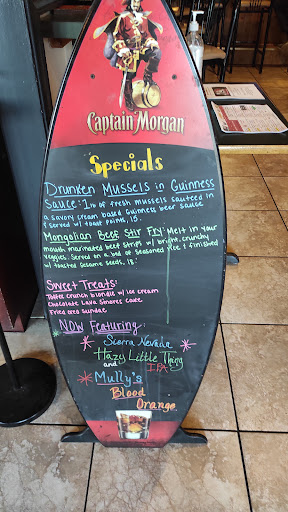 Captain Morgan
Specials
Drunken Mussels in Guinness
Sauce: 1LB of fresh mussels sauteed in
a savory cream based Guinness beer sauce
& served w/ toast points, 15.
Mongolian Beef Stir Fry: Melt in your
mouth marinated beef strips w/ bright, crunchy
veggies. Served on a bed of seasoned rice & finished
w/ toasted sesame seeds, 18.
Sweet Treats:
Toffee crunch blondie w/ ice cream
Chocolate Lava S'mores Cake
Fried oreo sundae
NOW Featuring:
Sierra Nevada
Hazy Little Thing
IPA
and
Mully's
Blood
Orange